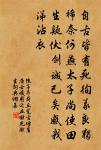 自古皆有死徇義良獨
稀奈何燕太子尚使田
生疑伏劍誠已矣感我
涕沾衣